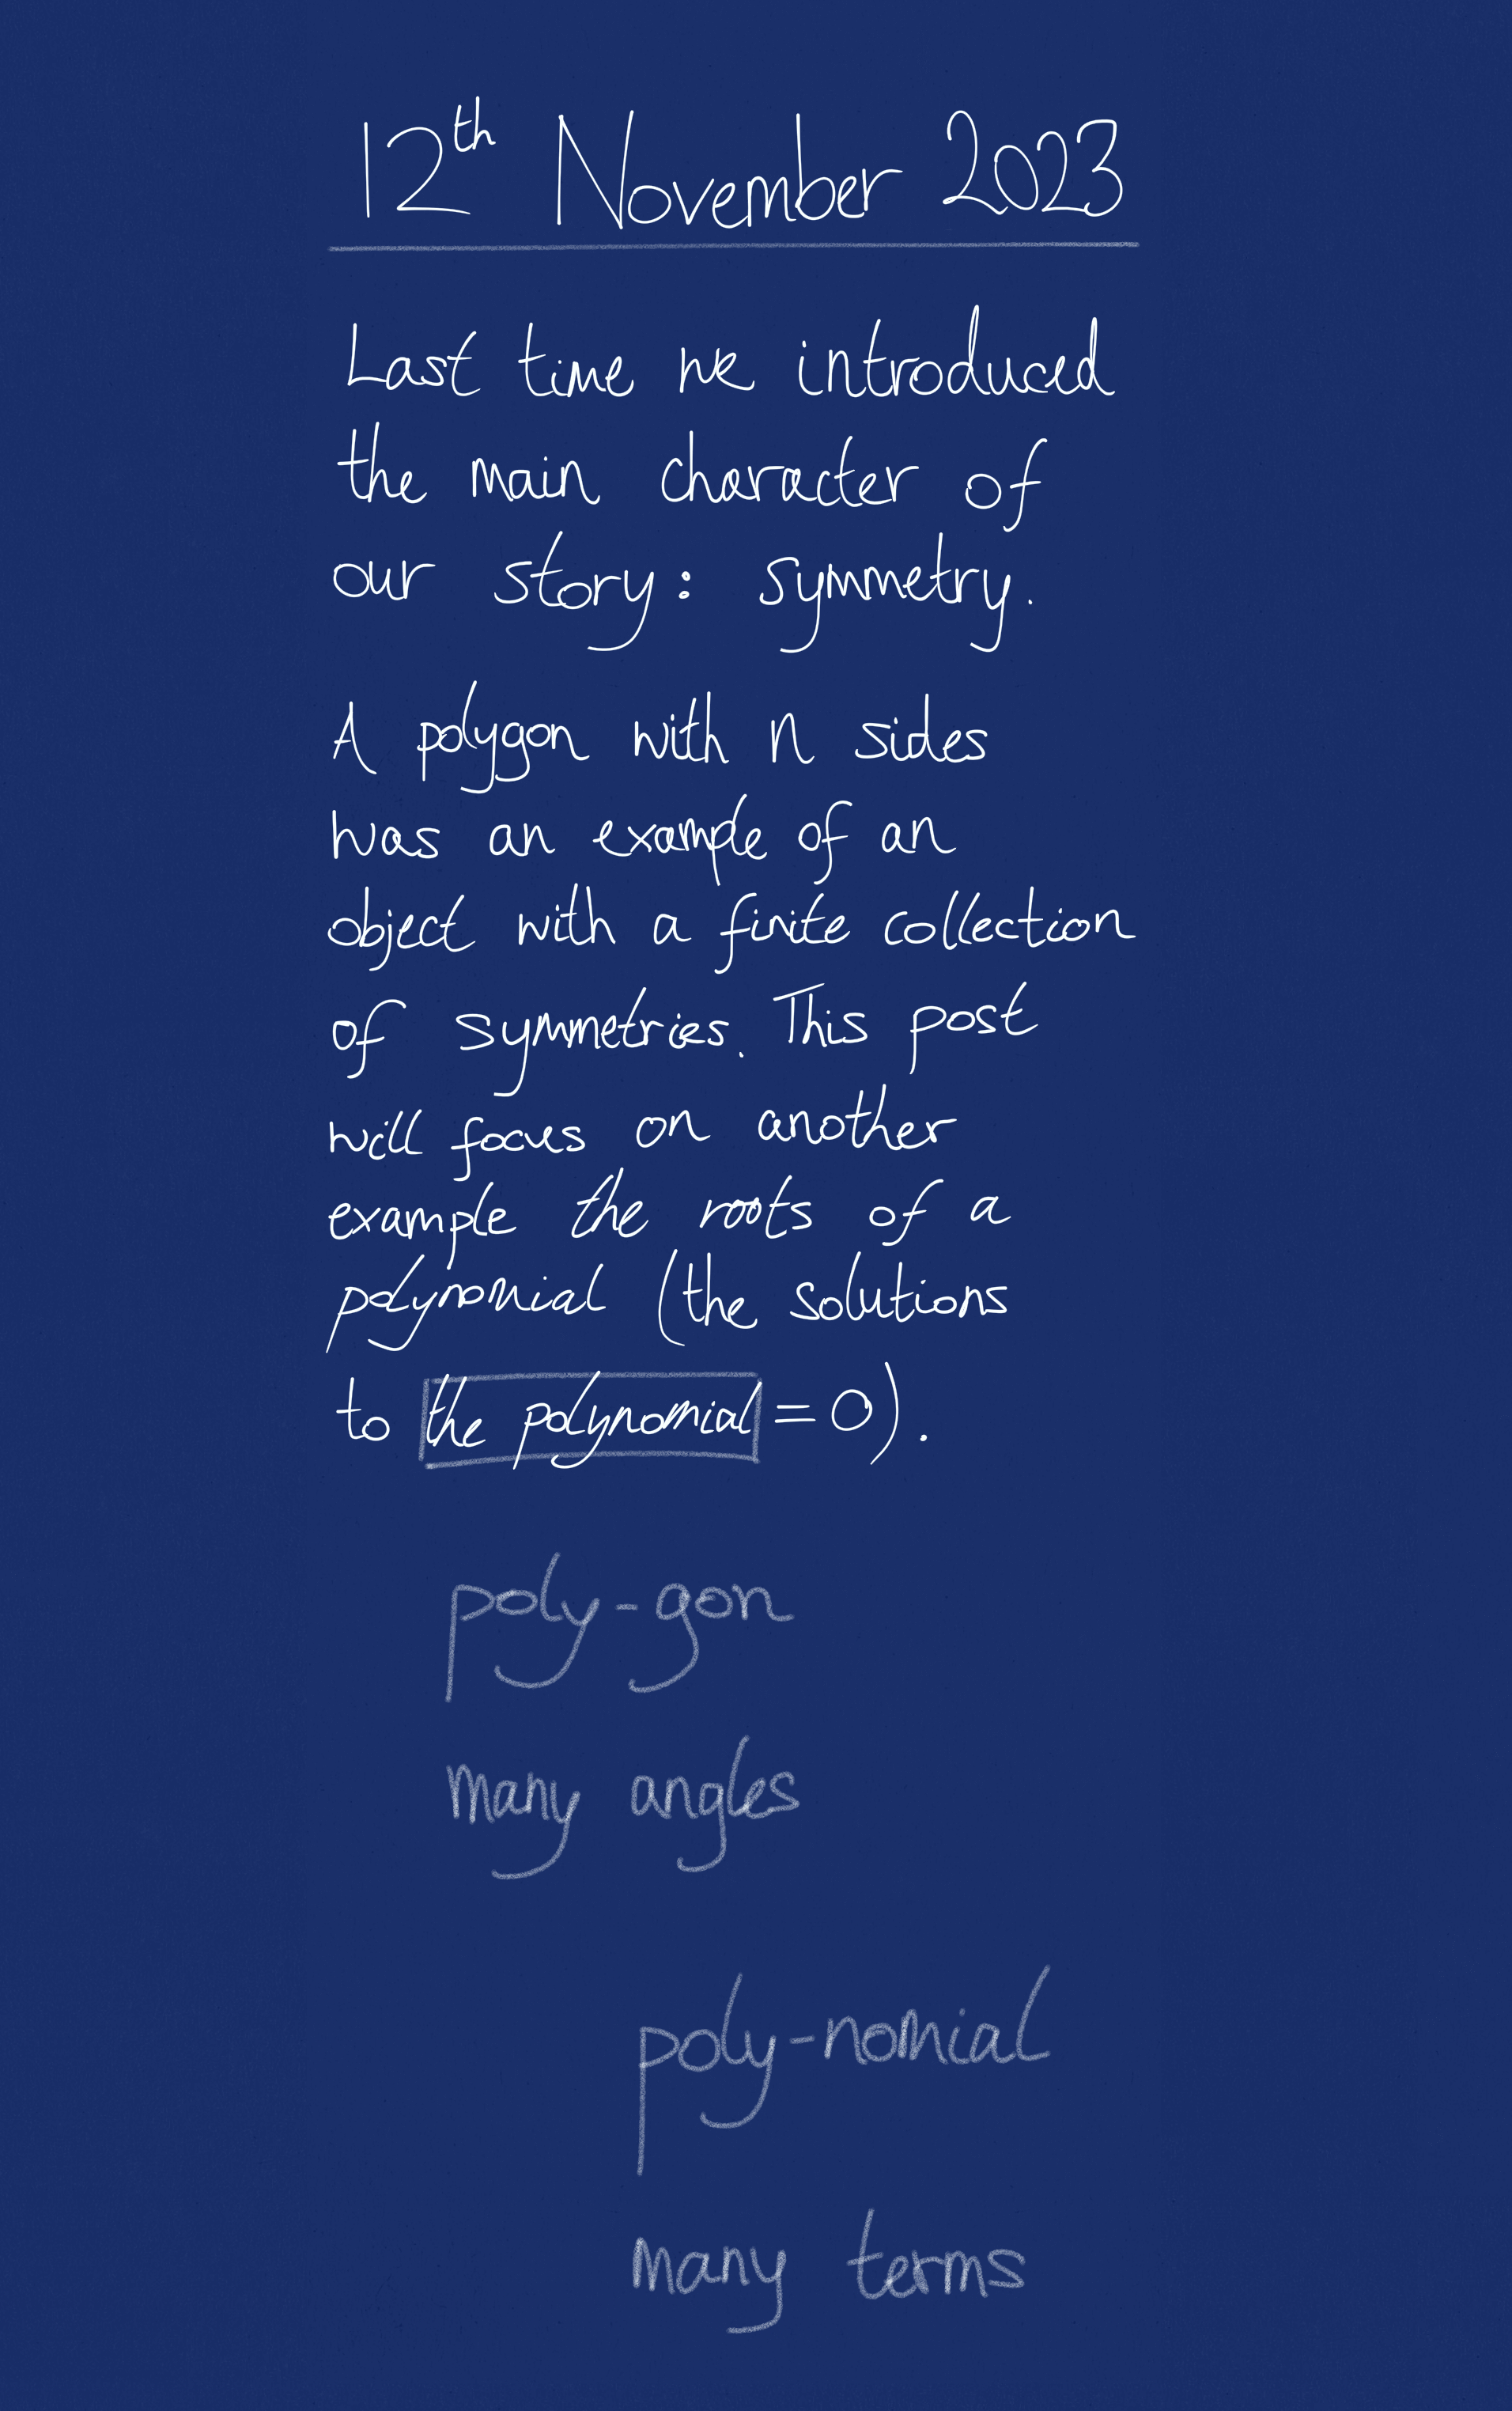 12th November 2023
Last time we introduced
the main character of
our story: symmetry.
A polygon with n sides
was an example of an
object with a finite collection
of symmetries. This post
will focus on another
example the roots of a
polynomial (the solutions
to the polynomial = 0).
poly-gon
many angles
poly-nomial
many terms